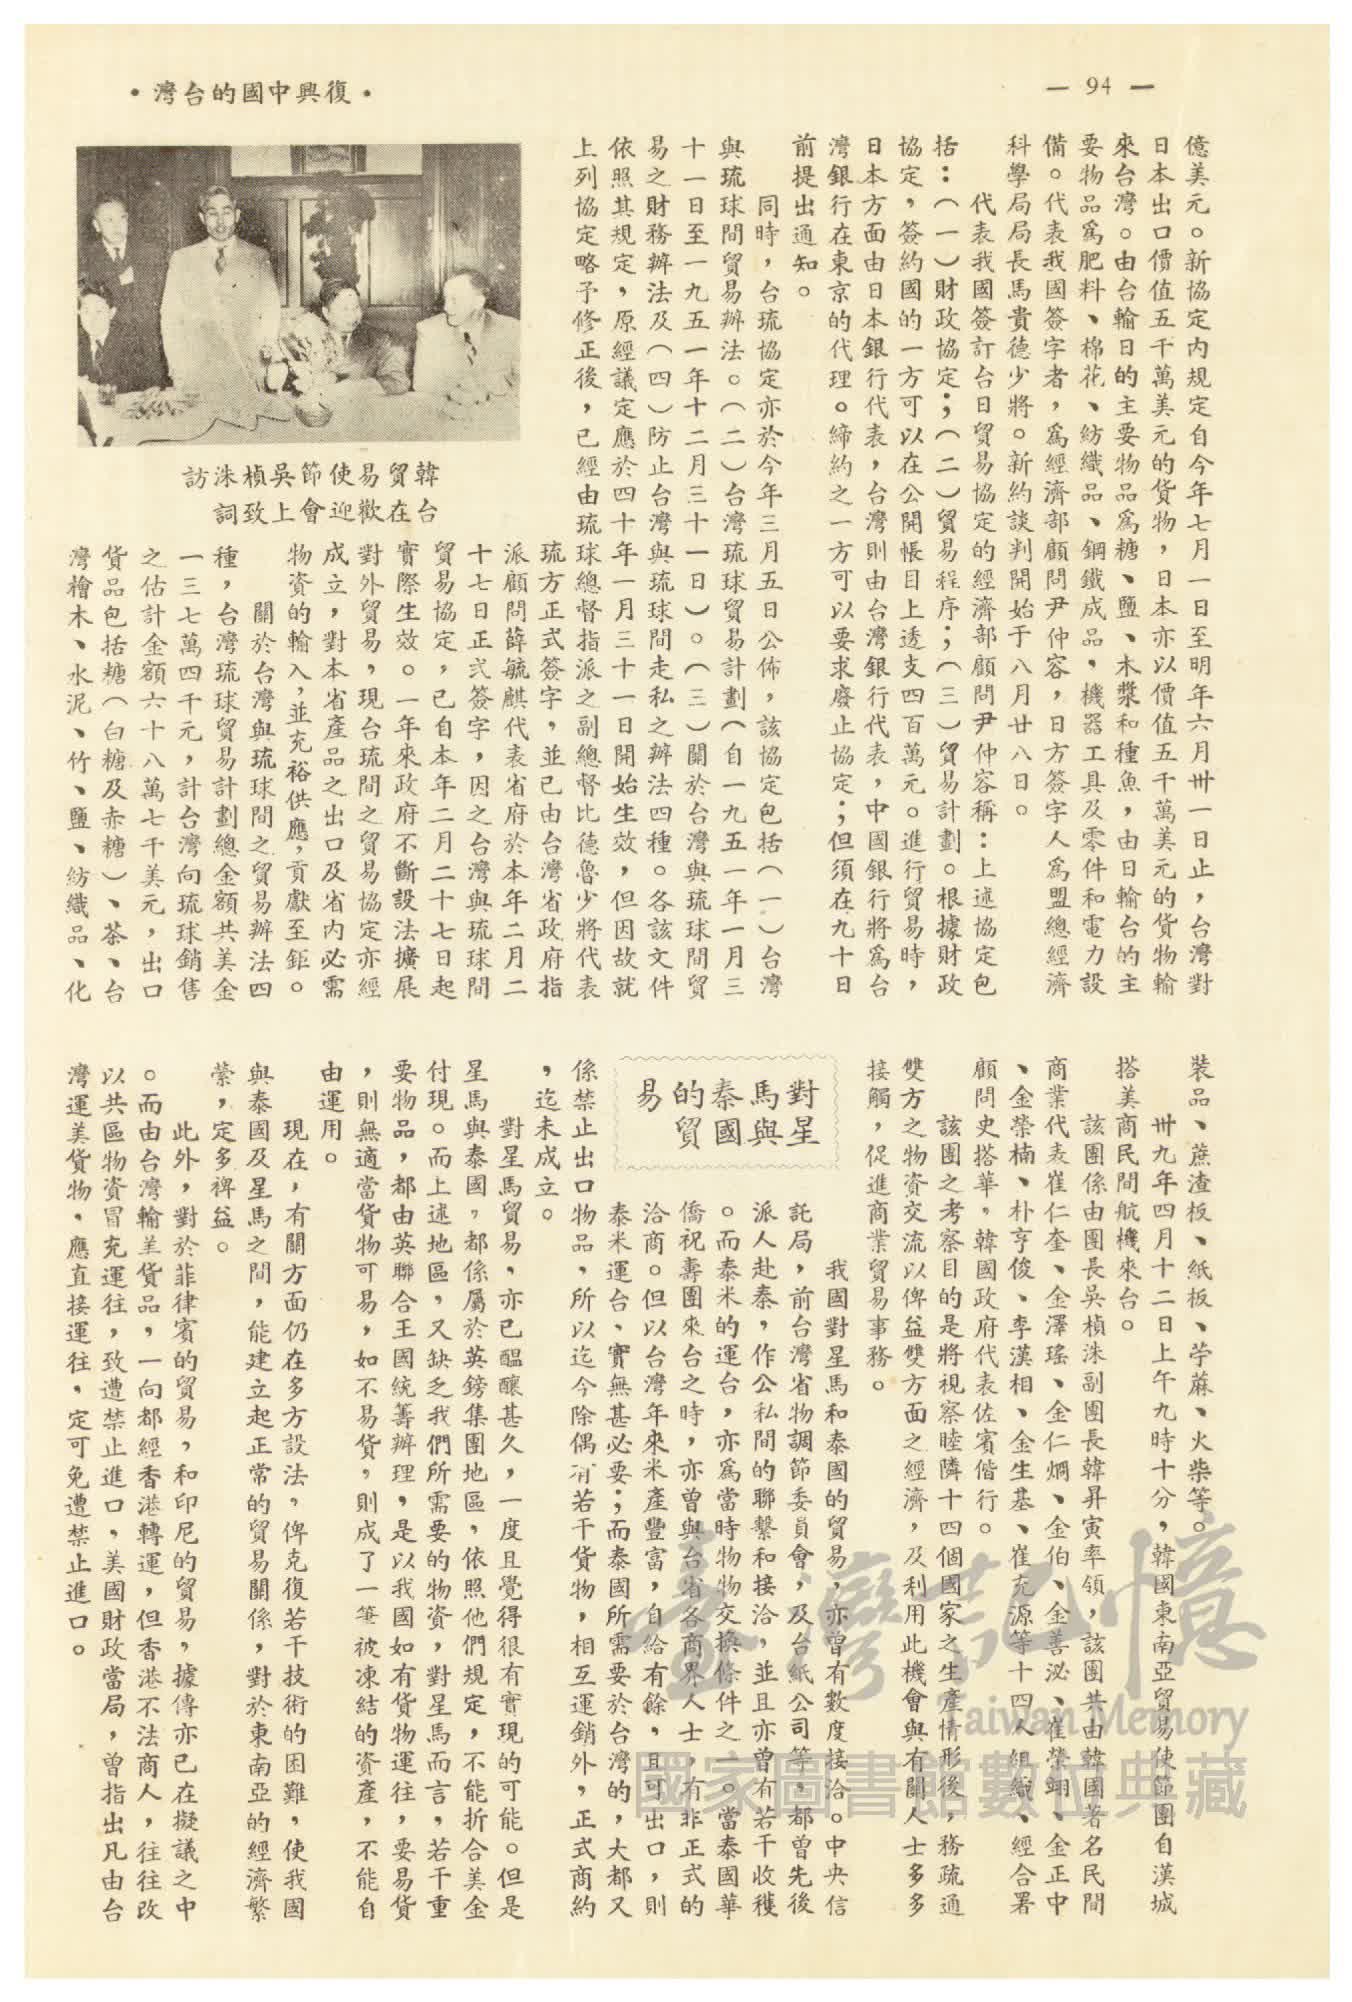 — 94 —
•復興中國的台灣•
億美元。新協定內規定自今年七月一日至明年六月卅一日止，台灣對
日本出口價值五千萬美元的貨物，日本亦以價值五千萬美元的貨物輸
來台灣。由台輸日的主要物品為糖、鹽、木漿和種魚，由日輸台的主
要物品為肥料、棉花、紡織品、鋼鐵成品，機器工具及零件和電力設
備。代表我國簽字者，為經濟部顧問尹仲容，日方簽字人為盟總經濟
科學局局長馬貴德少將。新約談判開始于八月廿八日。
代表我國簽訂台日貿易協定的經濟部顧問尹仲容稱：上述協定包
括：（一）財政協定；（二）貿易程序；（三）貿易計劃。根據財政
協定，簽約國的一方可以在公開帳目上透支四百萬元。進行貿易時，
日本方面由日本銀行代表，台灣則由台灣銀行代表，中國銀行將為台
灣銀行在東京的代理。締約之一方可以要求廢止協定；但須在九十日
前提出通知。
同時，台琉協定亦於今年三月五日公佈，該協定包括（一）台灣
與琉球間貿易辦法。（二）台灣琉球貿易計劃（自一九五一年一月三
十一日至一九五一年十二月三十一日）。（三）關於台灣與琉球間貿
易之財務辦法及（四）防止台灣與琉球間走私之辦法四種。各該文件
依照其規定，原經議定應於四十年一月三十一日開始生效，但因故就
上列協定略予修正後，已經由琉球總督指派之副總督比德魯少將代表
琉方正式簽字，並已由台灣省政府指
派顧問薛毓麒代表省府於本年二月二
十七日正式簽字，因之台灣與琉球間
貿易協定，已自本年二月二十七日起
實際生效。一年來政府不斷設法擴展
對外貿易，現台琉間之貿易協定亦經
成立，對本省產品之出口及省內必需
物資的輸入，並充裕供應，貢獻至鉅。
關於台灣與琉球間之貿易辦法四
種，台灣琉球貿易計劃總金額共美金
一三七萬四千元，計台灣向琉球銷售
之估計金額六十八萬七千美元，出口
貨品包括糖（白糖及赤糖）、茶、台
灣檜木、水泥、竹、鹽、紡織品、化
韓貿易使節吳楨洙訪
台在歡迎會上致詞
裝品、蔗渣板、紙板、苧蔴、火柴等。
卅九年四月十二日上午九時十分，韓國東南亞貿易使節團自漢城
搭美商民間航機來台。
該團係由團長吳楨洙副團長韓昇寅率領，該團共由韓國著名民間
商業代表崔仁奎、金澤瑤、金仁烱、金伯、金善泌、崔榮翊、金正中
、金榮楠、朴亨俊、李漢相、金生基、崔充源等十四人組織、經合署
顧問史搭華，韓國政府代表佐賓偕行。
該團之考察目的是將視察睦隣十四個國家之生產情形後，務疏通
雙方之物資交流以俾益雙方面之經濟，及利用此機會與有關人士多多
接觸，促進商業貿易事務。
對星馬與泰國的貿易
我國對星馬和泰國的貿易，亦曾有數度接洽。中央信
託局，前台灣省物調節委員會，及台紙公司等，都曾先後
派人赴泰，作公私間的聯繫和接洽，並且亦曾有若干收穫
。而泰米的運台，亦為當時物物交換條件之一。當泰國華
僑祝壽團來台之時，亦曾與台省各商界人士，有非正式的
洽商。但以台灣年來米產豐富，自給有餘，且可出口，則
泰米運台、實無甚必要；而泰國所需要於台灣的，大都又
係禁止出口物品，所以迄今除偶有若干貨物，相互運銷外，正式商約
，迄未成立。
對星馬貿易，亦已醞釀甚久，一度且覺得很有實現的可能。但是
星馬與泰國，都係屬於英鎊集團地區，依照他們規定，不能折合美金
付現。而上述地區，又缺乏我們所需要的物資，對星馬而言，若干重
要物品，都由英聯合王國統籌辦理，是以我國如有貨物運往，要易貨
，則無適當貨物可易，如不易貨，則成了一筆被凍結的資產，不能自
由運用。
現在，有關方面仍在多方設法，俾克復若干技術的困難，使我國
與泰國及星馬之間，能建立起正常的貿易關係，對於東南亞的經濟繁
縈，定多裨益。
此外，對於菲律賓的貿易，和印尼的貿易，據傳亦已在擬議之中
。而由台灣輸美貨品，一向都經香港轉運，但香港不法商人，往往改
以共區物資冒充運往，致遭禁止進口，美國財政當局，曾指出凡由台
灣運美貨物，應直接運往，定可免遭禁止進口。
臺灣記憶
Taiwan Memory
國家圖書館數位典藏